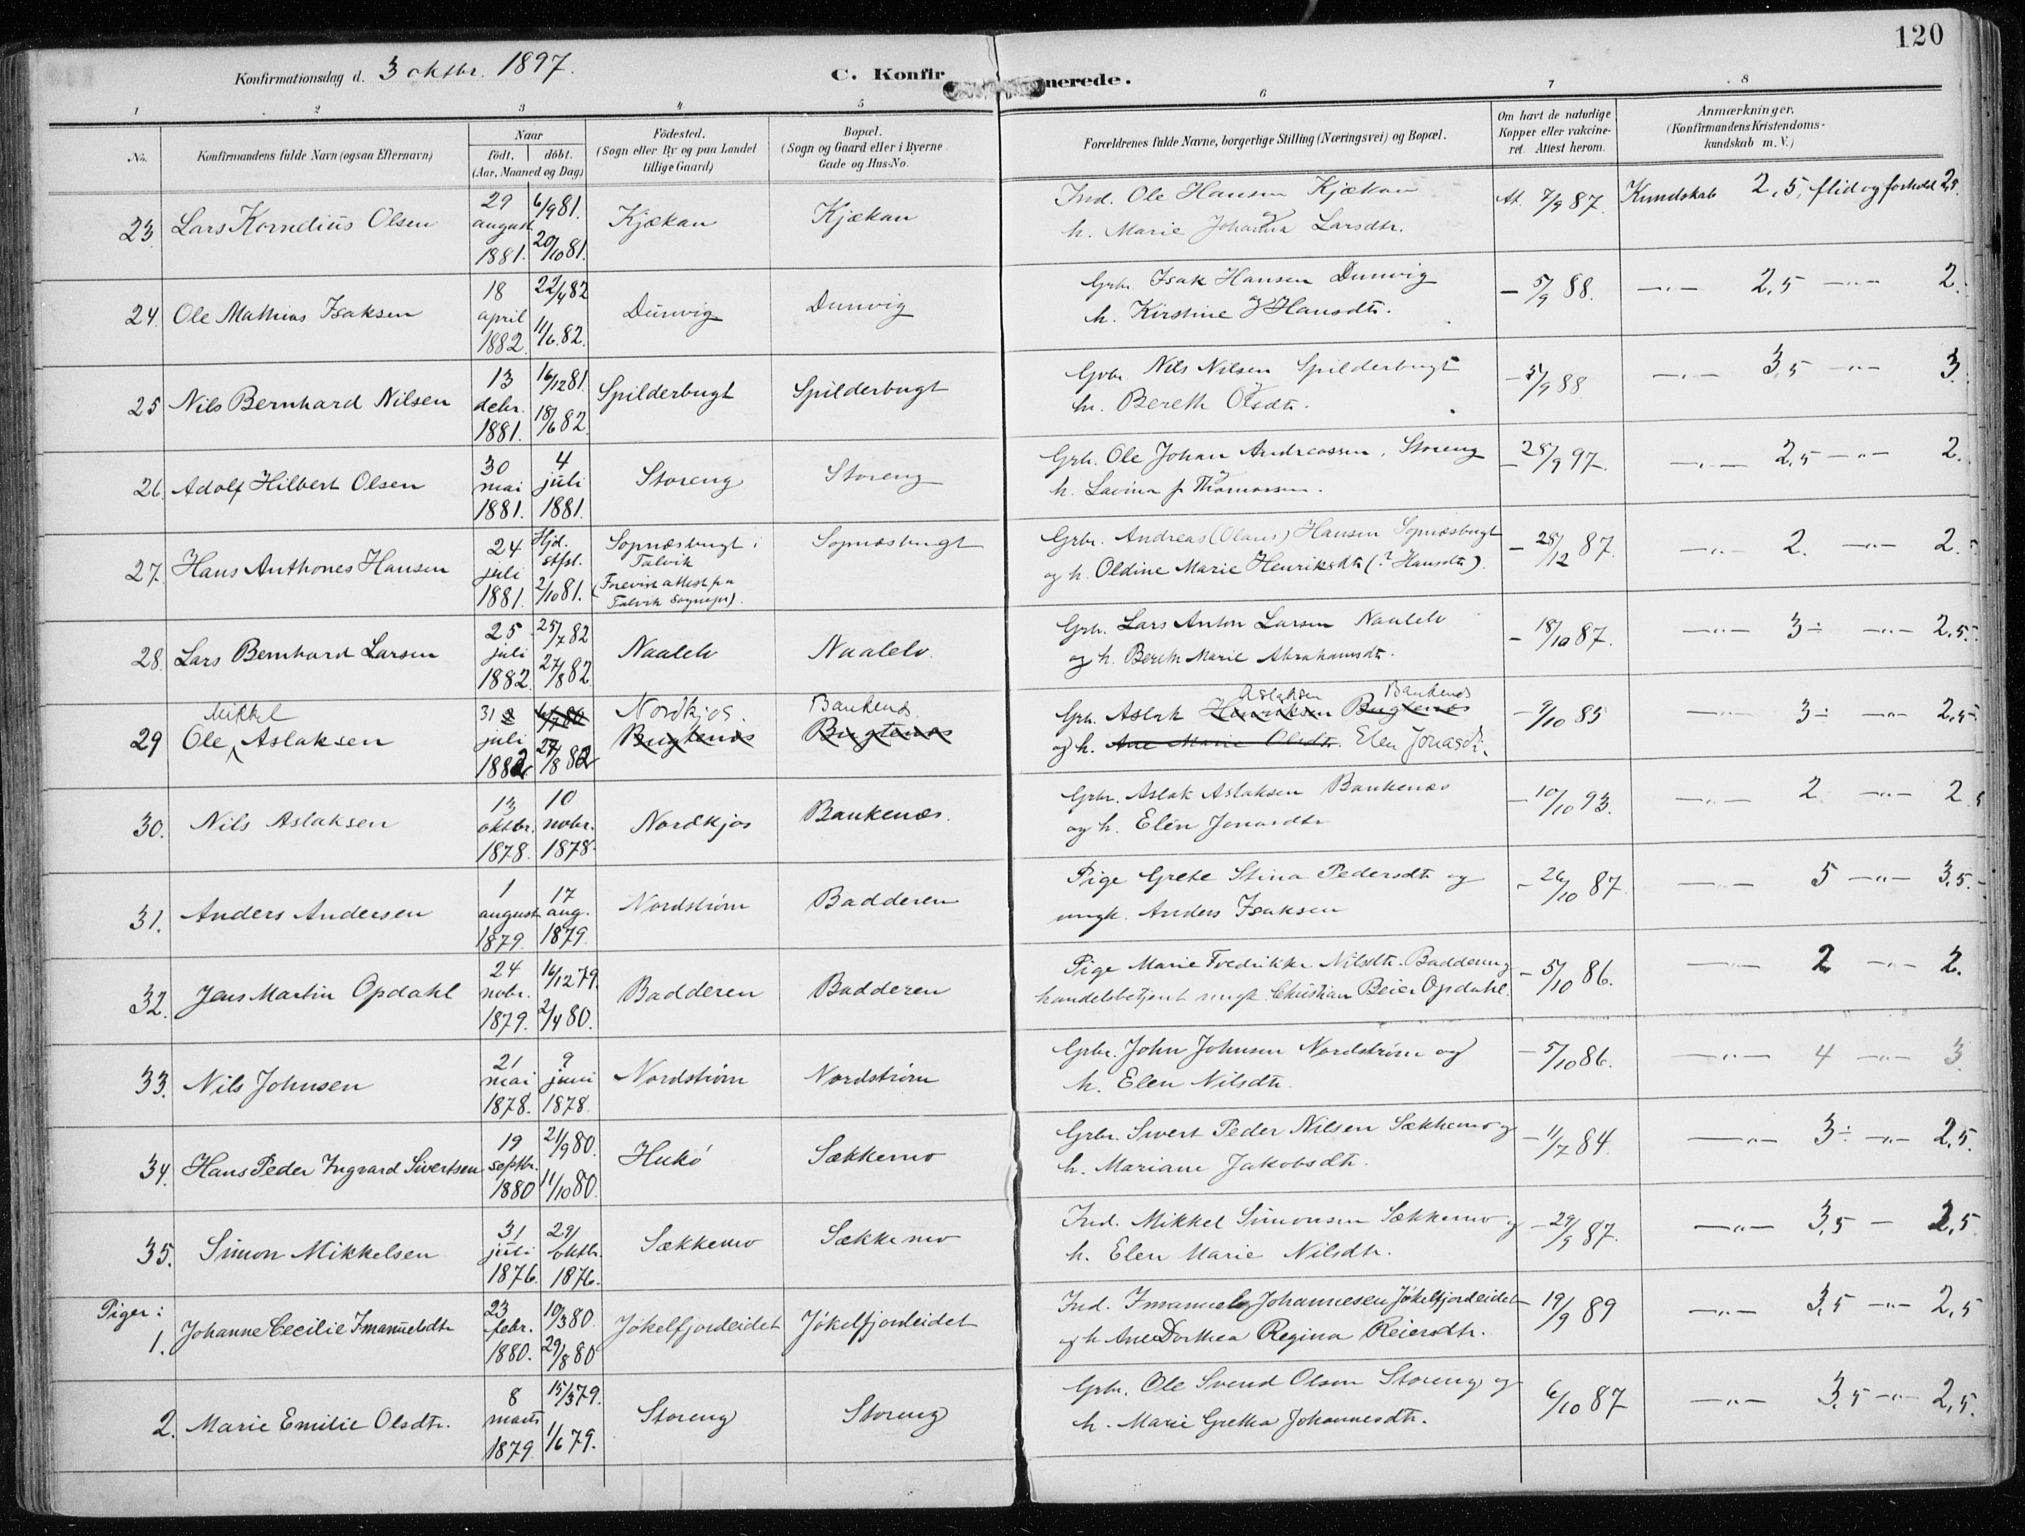 120
Konfirmationsdag d. 3 oktbr. 1897.
C. Konfirmerede.
1 2 3 4 5 6 7 8
No. Konfirmandens fulde Navn (ogsaa Efternavn)
Naar
födt. döbt.
(Aar, Maaned og Dag)
Födested.
(Sogn eller By og paa Landet
tillige Gaard)
Bopæl.
(Sogn og Gaard eller i Byerne
Gade og Hus-No.
Forældrenes fulde Navne, borgerlige Stilling (Næringsvei) og Bopæl.
Om havt de naturlige
Kopper eller vakcine-
ret. Attest herom.
Anmærkninger.
(Konfirmandens Kristendoms-
kundskab m. V.)
23. Lars Kornelius Olsen
29 august 1881. 6/9 81. 20/10 81.
Kjækan Kjækan
Ind. Ole Hansen Kjækan
h. Marie Johanna Larsdtr.
At. 7/9 87. Kundskab 2,5, flid og forhold 2,5.
24. Ole Mathias Isaksen
18 april 1882. 22/4 82 11/6 82.
Dunvig Dunvig
Grbr. Isak Hansen Dunvig
h. Kirstine Hansdtr.
— 5/9 88. —"— 2,5 —"— 2.
25 Nils Bernhard Nilsen
13 debr. 1881. 16/12 81. 18/6 82.
Spilderbugt Spilderbugt
Grbr Nils Nilsen Spilderbugt
h. Bereth Olsdtr.
— 5/9 88 —"— 3,5 —"— 3.
26. Adolf Hilbert Olsen
30 mai 1881. 4 juli 1881.
Storeng Storeng
Grb. Ole Johan Andreassen, Storeng
h. Lavina f. Thomassen.
— 25/9 97. —"— 2,5 —"— 2.
27. Hans Anthones Hansen
24 juli 1881. Hjd. stfst. 2/10 81.
Sopnæsbugt i
Talvik
(Forevist attest fra
Talvik Sognepr). Sopnæsbugt
Grbr. Andreas (Olaus) Hansen Sopnæsbugt
og h. Oldine Marie Henriksdtr (? Hansdtr).
— 28/12 87. —"— 2. —"— 2.5
28. Lars Bernhard Larsen
25 juli 1882. 25/7 82 27/8 82.
Naalelv Naalelv.
Grb. Lars Anton Larsen Naalelv
og h. Bereth Marie Abrahamsdtr.
— 18/10 87. —"— 3÷ —"— 2,5.
29 Ole Mikkel Aslaksen
31 juli 1882 27/8 82
Nordkjos. Bugtenæs Bankenæs Bugtenæs
Grb. Aslak Henriksen Aslaksen Bugtenæs Bankenæs
og h. Ane Marie Olsdtr. Elen Jonasdtr.
— 9/10 85 —"— 3÷ —"— 2,5
30. Nils Aslaksen
13 oktbr. 1878. 10 nobr. 1878.
Nordkjos Bankenæs.
Grbr. Aslak Aslaksen Bankenæs
og h. Elen Jonasdtr
— 10/10 93. —"— 2 —"— 2.5
31. Anders Andersen
1 august 1879. 17 aug. 1879.
Nordstrøm Badderen
Pige Grete Stina Pedersdtr og
ungk. Anders Isaksen
— 26/10 87. —"— 5 —"— 3,5.
32. Jens Martin Opdahl
24 nobr. 1879. 16/12 79. 2/4 80.
Badderen Badderen
Pige Marie Fredrikke Nilsdtr. Badderen og
handelsbetjent ungk. Christian Beier Opdahl.
— 5/10 86. —"— 2 —"— 2.
33. Nils Johnsen
21 mai 1878. 9 juni 1878.
Nordstrøm Nordstrøm
Grbr. John Johnsen Nordstrøm og
h. Elen Nilsdtr.
— 5/10 86. —"— 4 —"— 3
34. Hans Peder Ingvard Sivertsen
19 septbr. 1880 21/9 80. 11/10 80.
Hukø Sækkemo
Grbr. Sivert Peder Nilsen Sækkemo og
h. Mariane Jakobsdtr.
— 11/7 84. —"— 3÷ —"— 2,5.
35. Simon Mikkelsen
31 juli 1876. 29/ oktbr. 1876.
Sækkemo Sækkemo
Ind. Mikkel Simonsen Sækkemo og
h. Elen Marie Nilsdtr.
— 29/9 87. —"— 3,5 — 2,5
Piger:
1. Johanne Cecilie Imanuelsdtr
23 febr. 1880. 10/3 80. 29/8 80
Jøkelfjordeidet Jøkelfjordeidet
Ind. Imanuel Johannesen Jøkelfjordeidet
og h Ane Dorthea Regina Reiersdtr.
— 19/9 89 —"— 3,5 —"— 2,5
2. Marie Emilie Olsdtr.
8 marts 1879. 15/3 79. 1/6 79.
Storeng Storeng
Grbr. Ole Svend Olsen Storeng og
h. Marie Gretha Johannesdtr.
6/10 87 —"— 3,5 —"— 2,5.